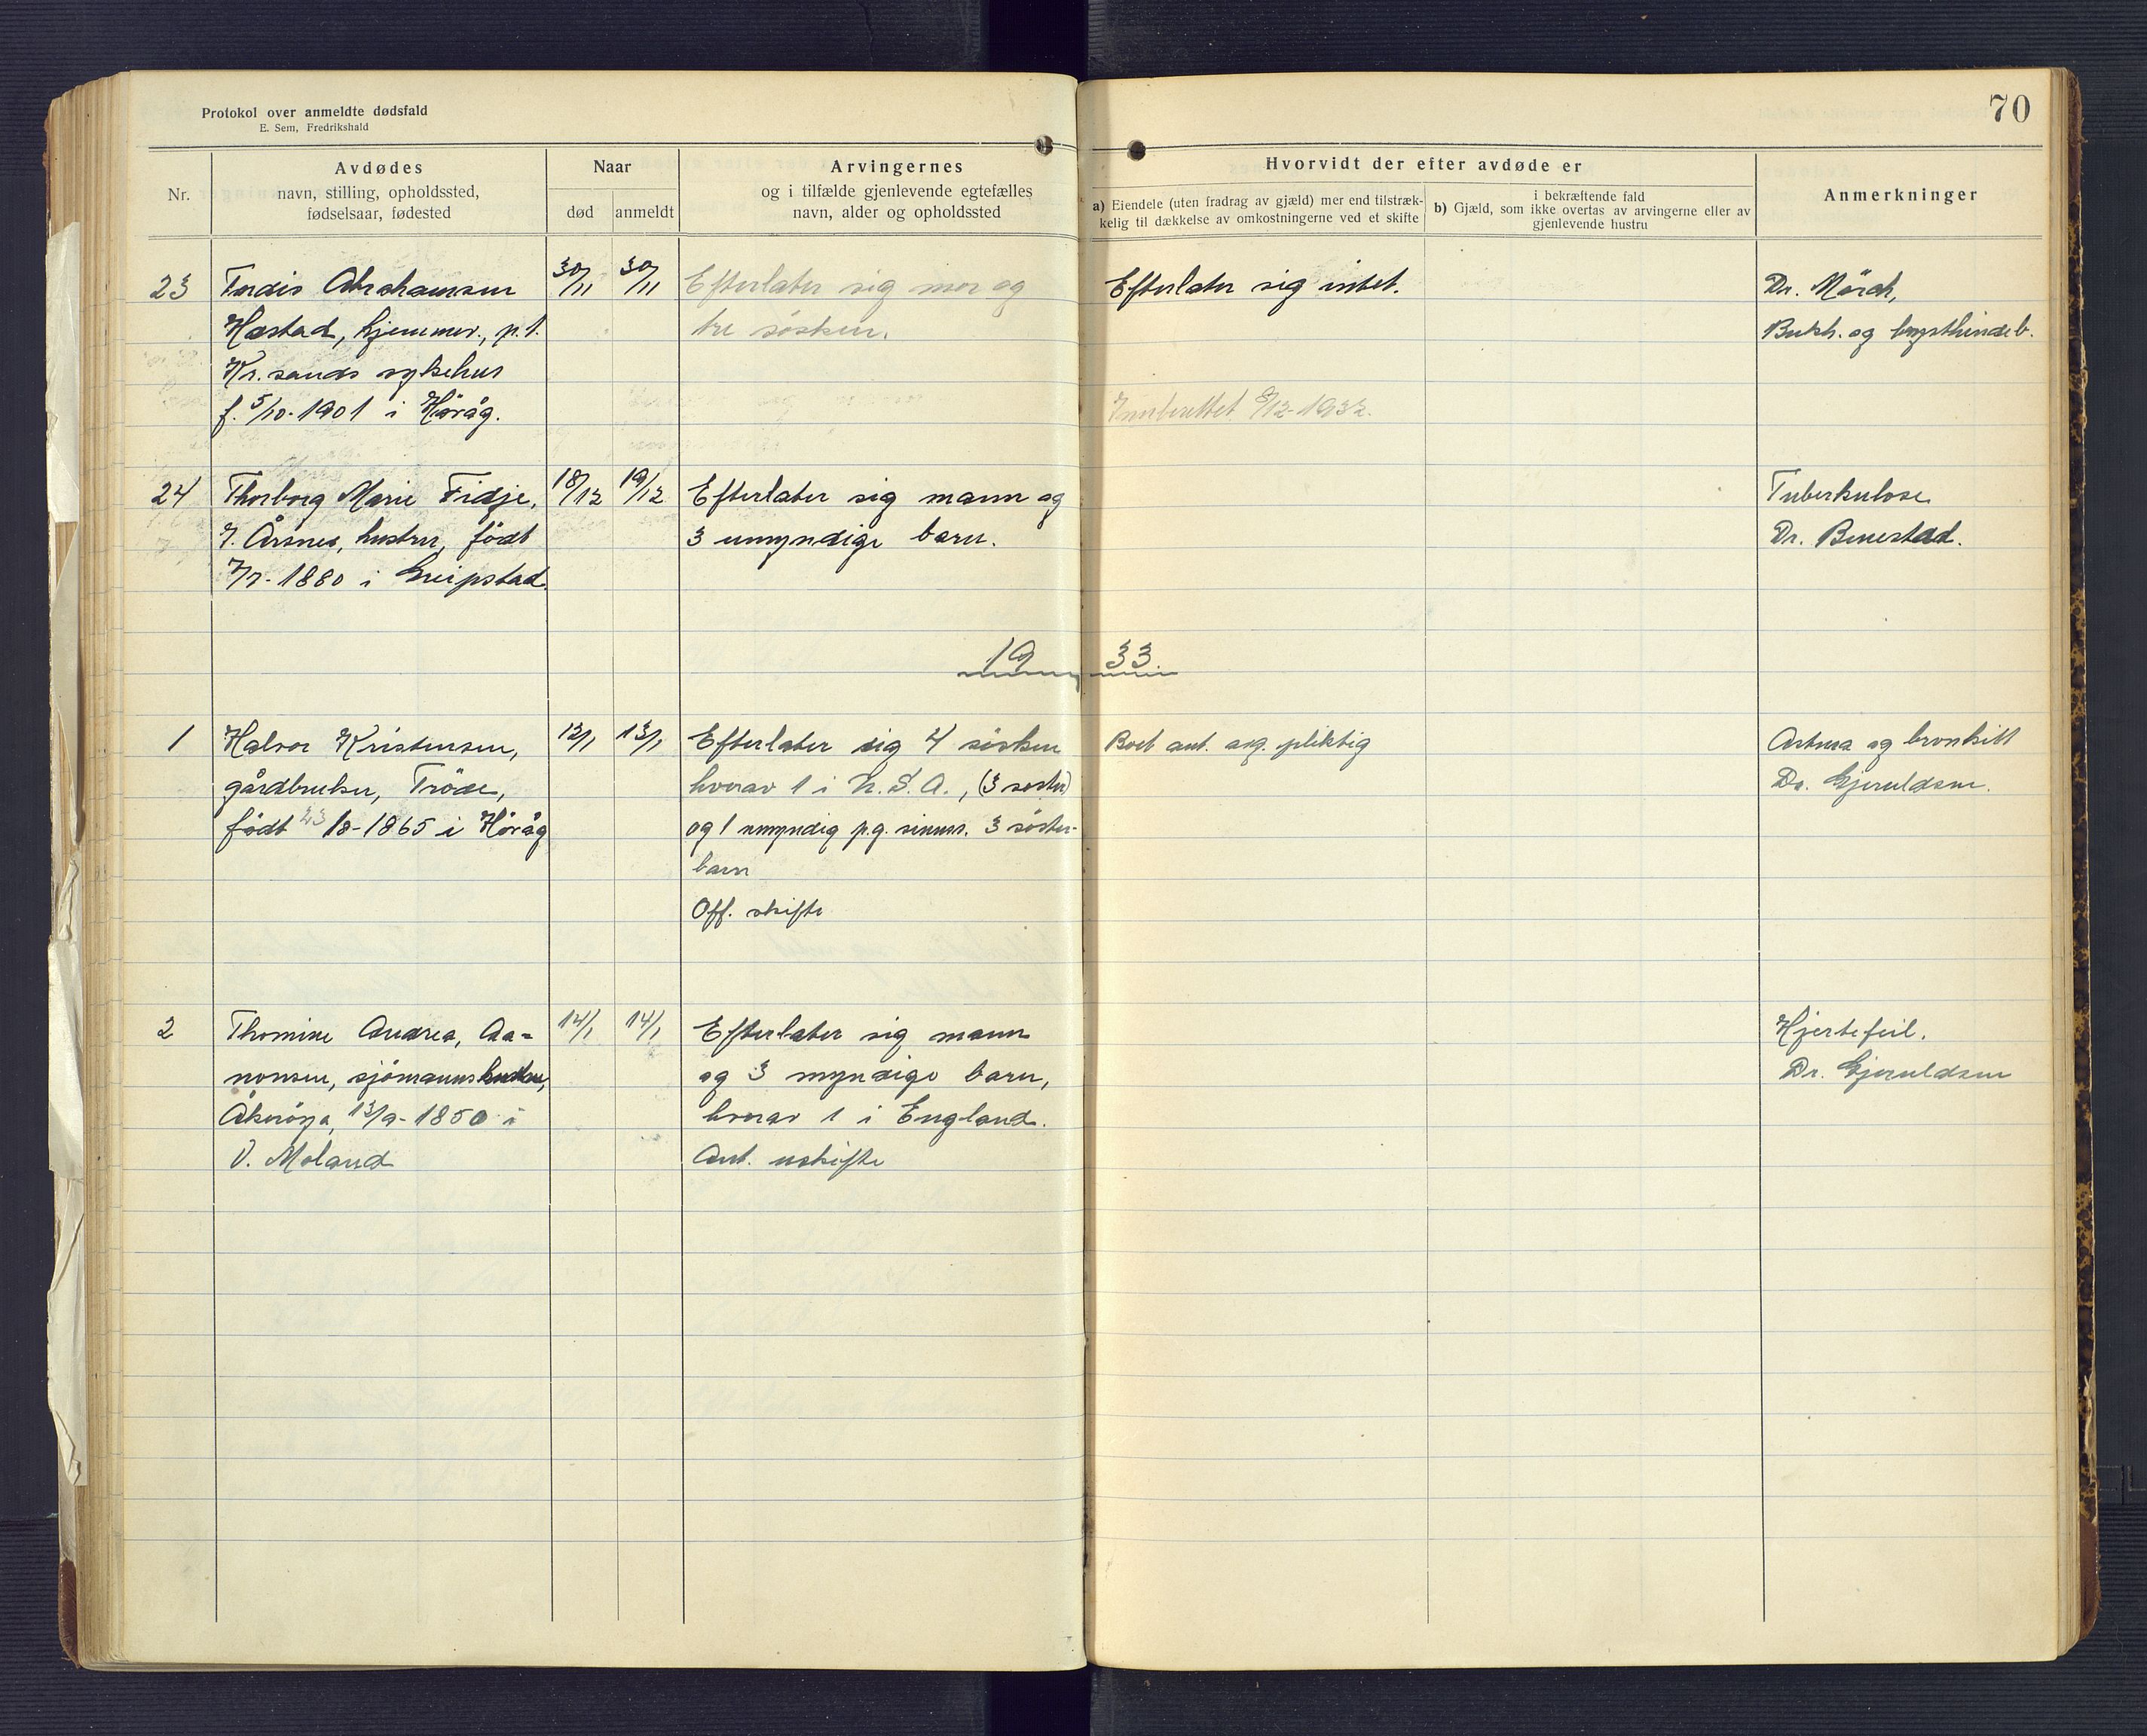 Protokol over anmeldte dødsfald
E. Sem, Fredrikshald
70
Nr.
Avdødes
navn, stilling, opholdssted,
fødselsaar, fødested
Naar
død
anmeldt
Arvingernes
og i tilfælde gjenlevende egtefælles
navn, alder og opholdssted
Hvorvidt der efter avdøde er
a) Eiendele (uten fradrag av gjæld) mer end tilstræk-
kelig til dækkelse av omkostningerne ved et skifte
i bekræftende fald
b) Gjæld, som ikke overtas av arvingerne eller av
gjenlevende hustru
Anmerkninger
23
Tordis Abrahamsen
Hæstad, hjemmev., p.t.
Kr.sands sykehus
f. 5/10-1901 i Höråg.
30/11
30/11
Efterlater sig mor og
tre søsken.
Efterlater sig intet.
Innberettet 8/12-1932.
Dr. Mörch,
Bukh. og brysthindeb.
24
Thorborg Marie Fidje,
Y. Årsnes, hustru, födt
7/7-1880 i Greipstad.
18/12
19/12
Efterlater sig mann og
3 umyndige barn.
Tuberkulose
Dr. Benestad.
19 33.
1
Halvor Kristensen,
gårdbruker, Tröde,
födt 23/8-1865 i Höråg
12/1
13/1
Efterlater sig 4 søsken
hvorav 1 i U.S.A., (3 søstre)
og 1 umyndig p.g. sinnss. 3 söster-
barn
Off. skifte
Boet ant. avg. pliktig
Astma og bronkitt
Dr. Gjeruldsen.
2
Thomine Andrea, Aa-
nonsen, sjömannshustru,
Åkeröya, 13/9-1850 i
V. Moland
14/1
14/1
Efterlater sig mann
og 3 myndige barn,
hvorav 1 i England.
Ant. uskifte
Hjertefeil.
Dr. Gjeruldsen